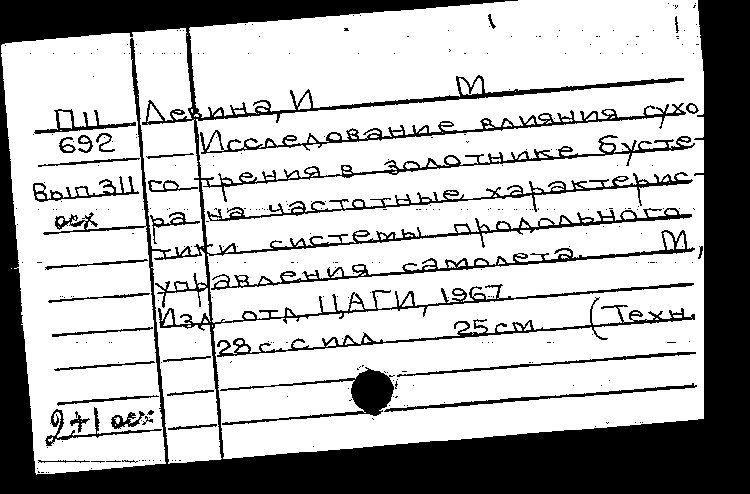 П11 Левина, И М
692 Исследование влияния сухо
Вып.311 го трения в золотнике бусте-
осх ра на частотные характерис-
тики системы продольного
управления самолета. М,
Изд. отд. ЦАГИ, 1967.
28 с. с илл. 25 см (Техн.
2+1 осх